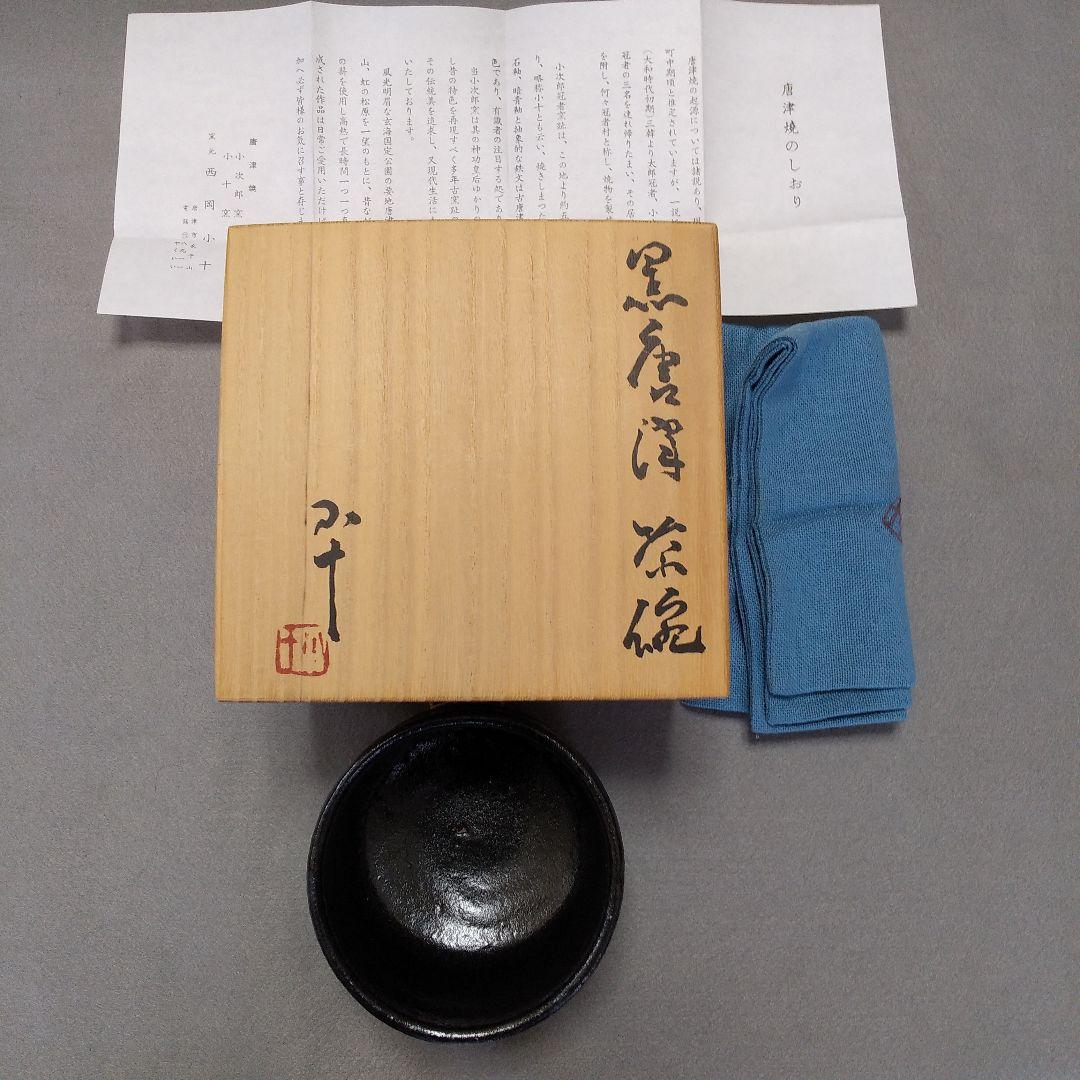 唐津焼のしおり
唐津焼の起源については諸説あり、
町中期頃と推定されていますが、一説
(大和時代初期)三韓より太郎冠者、小
冠者の三名を連れ帰りたまい、その居
を附し、何々冠者村と称し、焼物を製
小次郎冠者窯趾は、この地より約五
り、略称小十とも云い、焼きしまった
石釉、暗青釉と抽象的な鉄文は古唐津
色であり、有識者の注目する処であり
当小次郎窯は其の神功皇后ゆかりの
し昔の特色を再現すべく多年古窯趾の
その伝統美を追求し、又現代生活に
いたしております。
風光明眉な玄海国定公園の要地唐津
山、虹の松原を一望のもとに、昔なが
の薪を使用し高熱で長時間一つ一つ
成された作品は日常ご愛用いただけば
加へ必ず皆様のお気に召す事と存じま
唐津焼
小次郎窯
小十窯
窯元 西岡小十
唐津市
電話
黒唐津 茶碗
小十